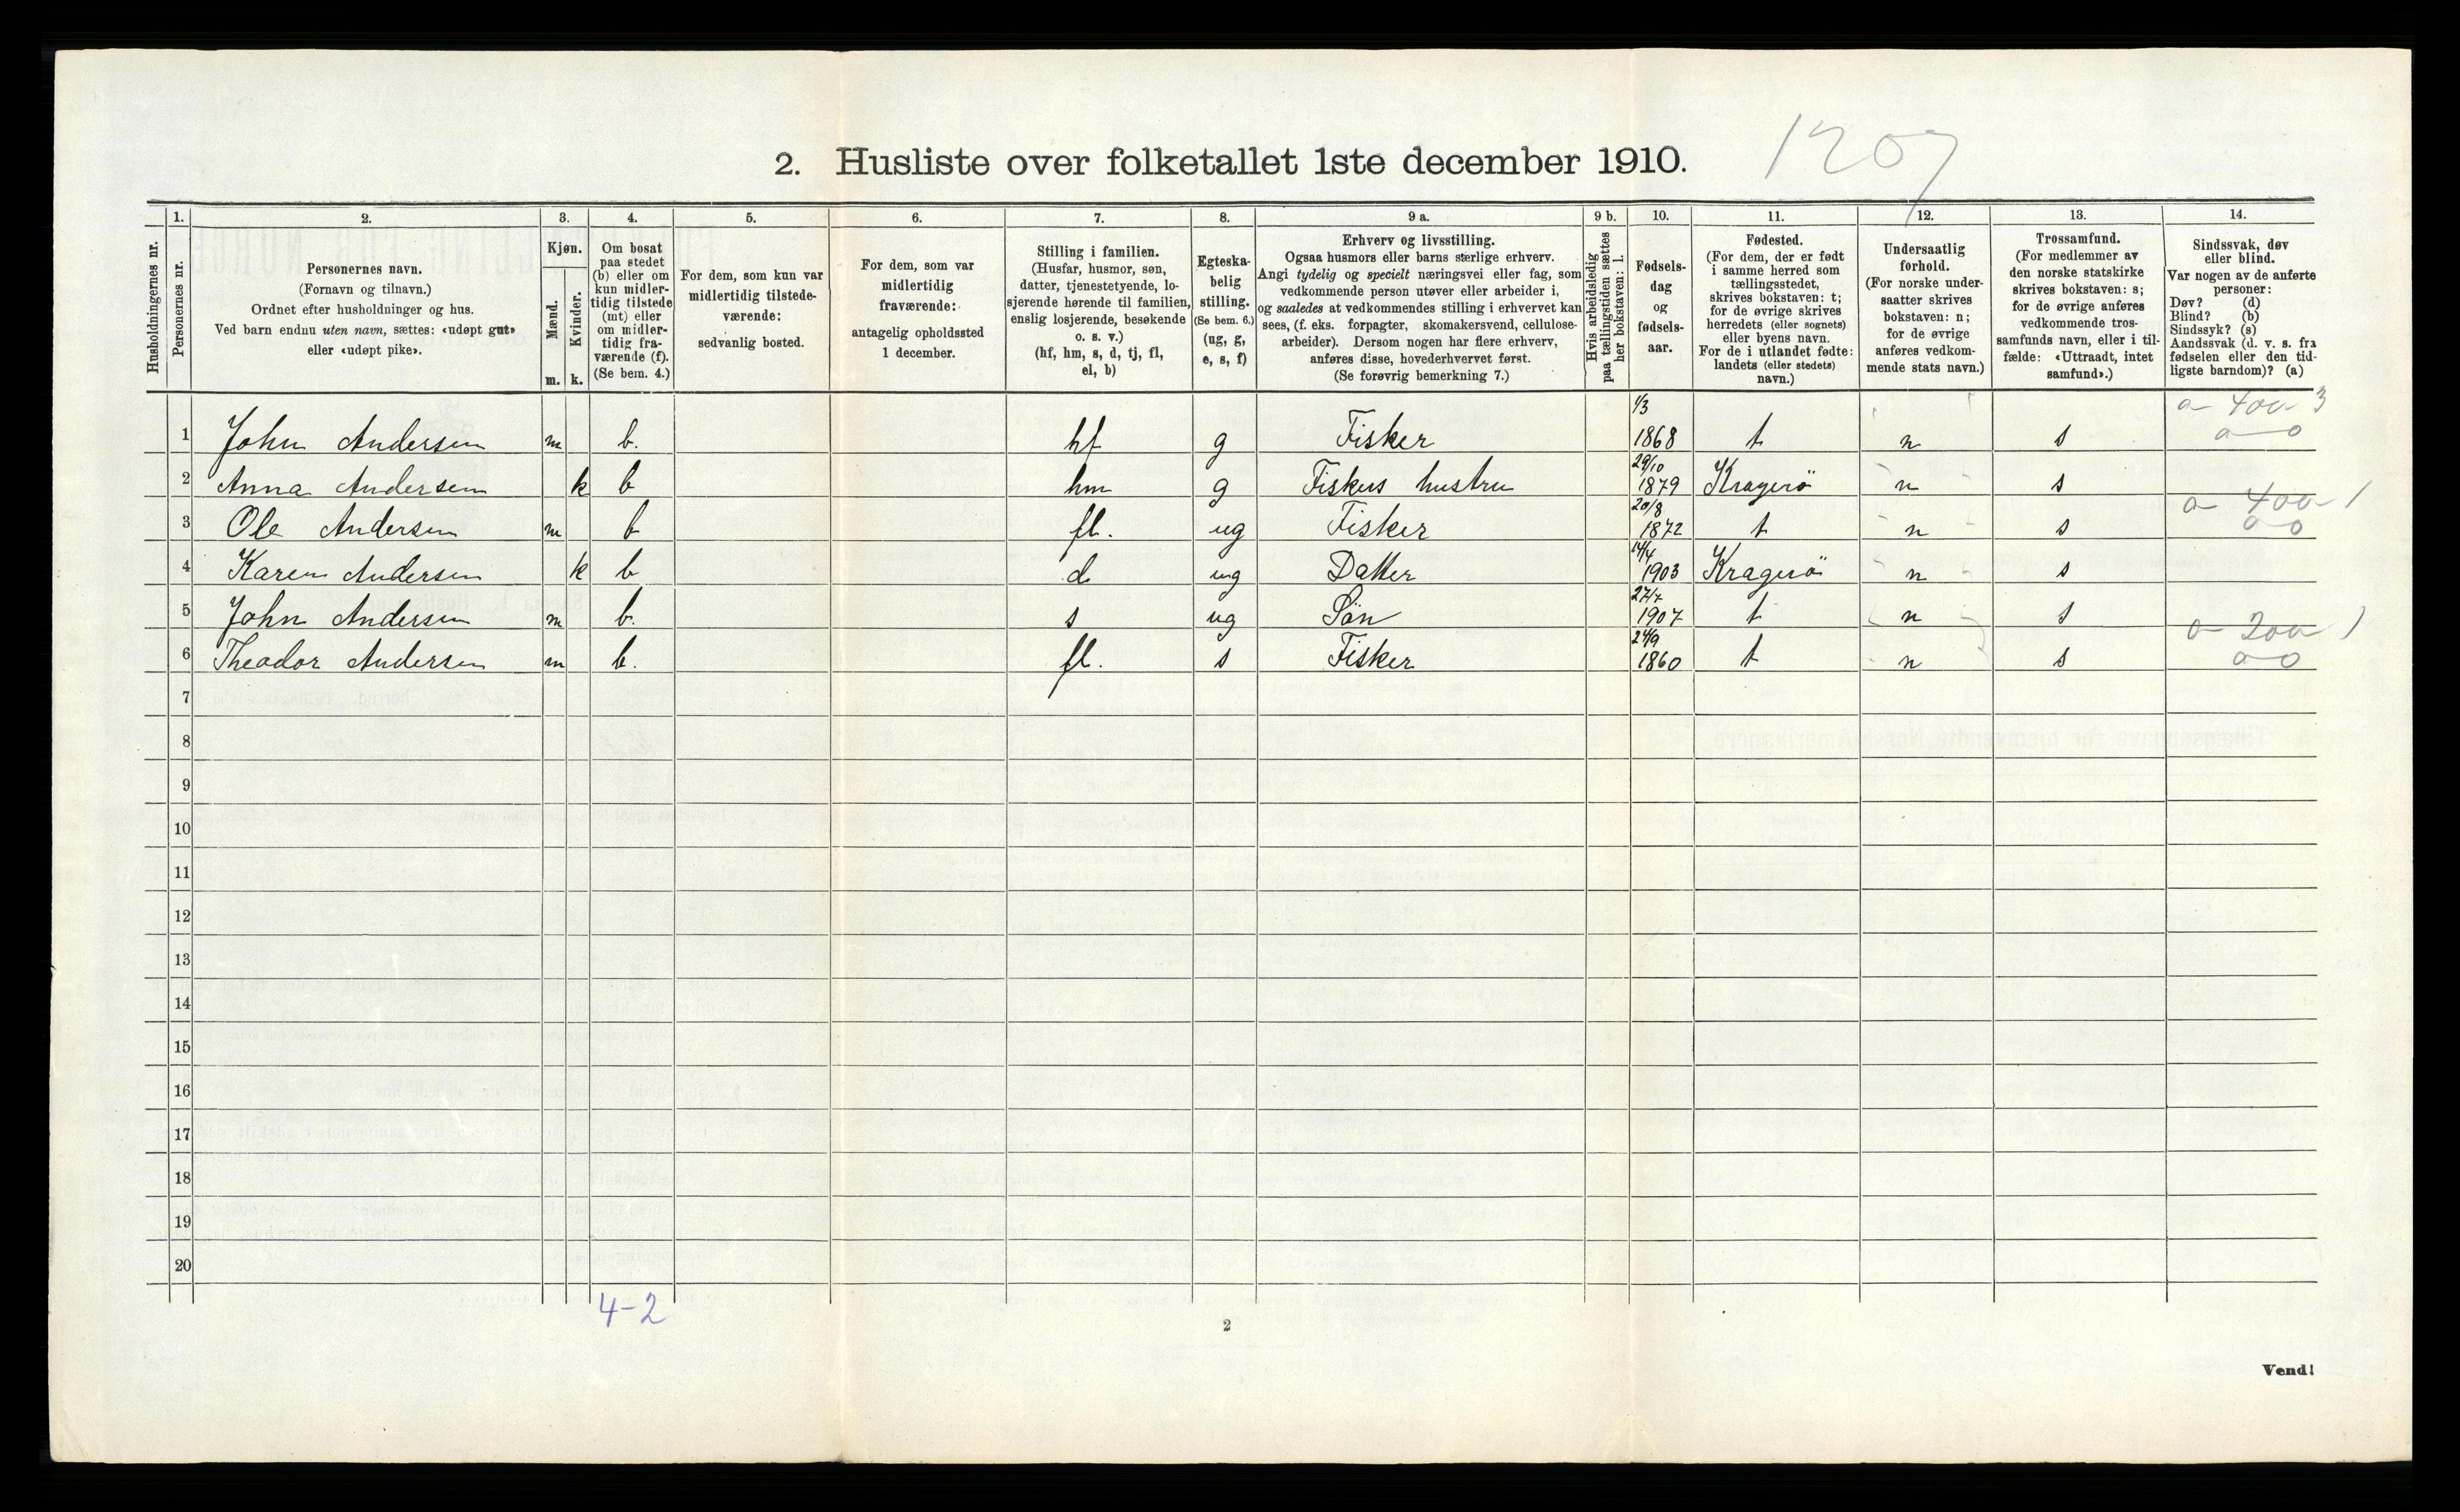 2. Husliste over folketallet 1ste december 1910. 1207
Husholdningernes nr.
1. Personernes nr.
2. Personernes navn. (Fornavn og tilnavn.) Ordnet efter husholdninger og hus. Ved barn endnu uten navn, sættes: «udøpt gut» eller «udøpt pike».
3. Kjøn. Mænd. m. Kvinder. k.
4. Om bosat paa stedet (b) eller om kun midlertidig tilstede (mt) eller om midlertidig fraværende (f). (Se bem. 4.)
5. For dem, som kun var midlertidig tilstedeværende: sedvanlig bosted.
6. For dem, som var midlertidig fraværende: antagelig opholdssted 1 december.
7. Stilling i familien. (Husfar, husmor, søn, datter, tjenestetyende, losjerende hørende til familien, enslig losjerende, besøkende o. s. v.) (hf, hm, s, d, tj, fl, el, b)
8. Egteskabelig stilling. (Se bem. 6.) (ug, g, e, s, f)
9 a. Erhverv og livsstilling. Ogsaa husmors eller barns særlige erhverv. Angi tydelig og specielt næringsvei eller fag, som vedkommende person utøver eller arbeider i, og saaledes at vedkommendes stilling i erhvervet kan sees, (f. eks. forpagter, skomakersvend, cellulosearbeider). Dersom nogen har flere erhverv, anføres disse, hovederhvervet først. (Se forøvrig bemerkning 7.)
9 b. Hvis arbeidsledig paa tællingstiden sættes her bokstaven: l.
10. Fødselsdag og fødselsaar.
11. Fødested. (For dem, der er født i samme herred som tællingsstedet, skrives bokstaven: t; for de øvrige skrives herredets (eller sognets) eller byens navn. For de i utlandet fødte: landets (eller stedets) navn.)
12. Undersaatlig forhold. (For norske undersaatter skrives bokstaven: n; for de øvrige anføres vedkommende stats navn.)
13. Trossamfund. (For medlemmer av den norske statskirke skrives bokstaven: s; for de øvrige anføres vedkommende trossamfunds navn, eller i tilfælde: «Uttraadt, intet samfund».)
14. Sindssvak, døv eller blind. Var nogen av de anførte personer: Døv? (d) Blind? (b) Sindssyk? (s) Aandssvak (d. v. s. fra fødselen eller den tidligste barndom)? (a)
1 John Andersen m b. hf g Fisker 1/3 1868 t n s
2 Anna Andersen k b hm g Fiskers hustru 29/10 1879 Kragerö n s
3 Ole Andersen m b fl. ug Fisker 20/8 1872 t n s
4 Karen Andersen k b d ug Datter 14/4 1903 Kragerö n s
5 John Andersen m b. s ug Sön 27/4 1907 t n s
6 Theodor Andersen m b. fl. s Fisker 24/9 1860 t n s
7
8
9
10
11
12
13
14
15
16
17
18
19
20
4-2
2
Vend!